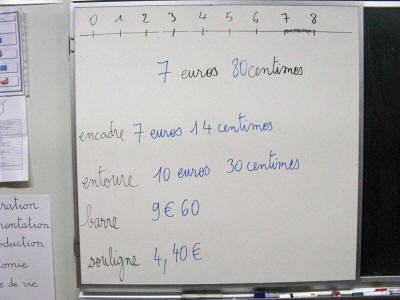 0 1 2 3 4 5 6 7 8
7 euros 80 centimes
encadre 7 euros 14 centimes
entoure 10 euros 30 centimes
barre 9€60
souligne 4,40€